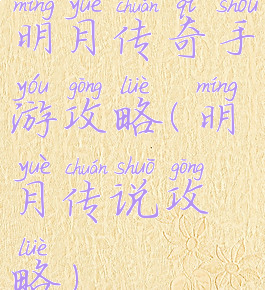 míng yuè chuán qí shǒu
明月传奇手
yóu gōng lüè míng
游攻略(明
yuè chuán shuō gōng
月传说攻
lüè
略)